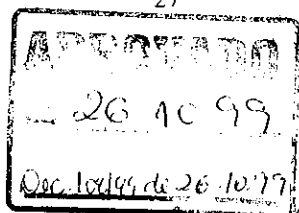 27
APROVADO
26 10 99
Dec. 109/99 de 26.10.99